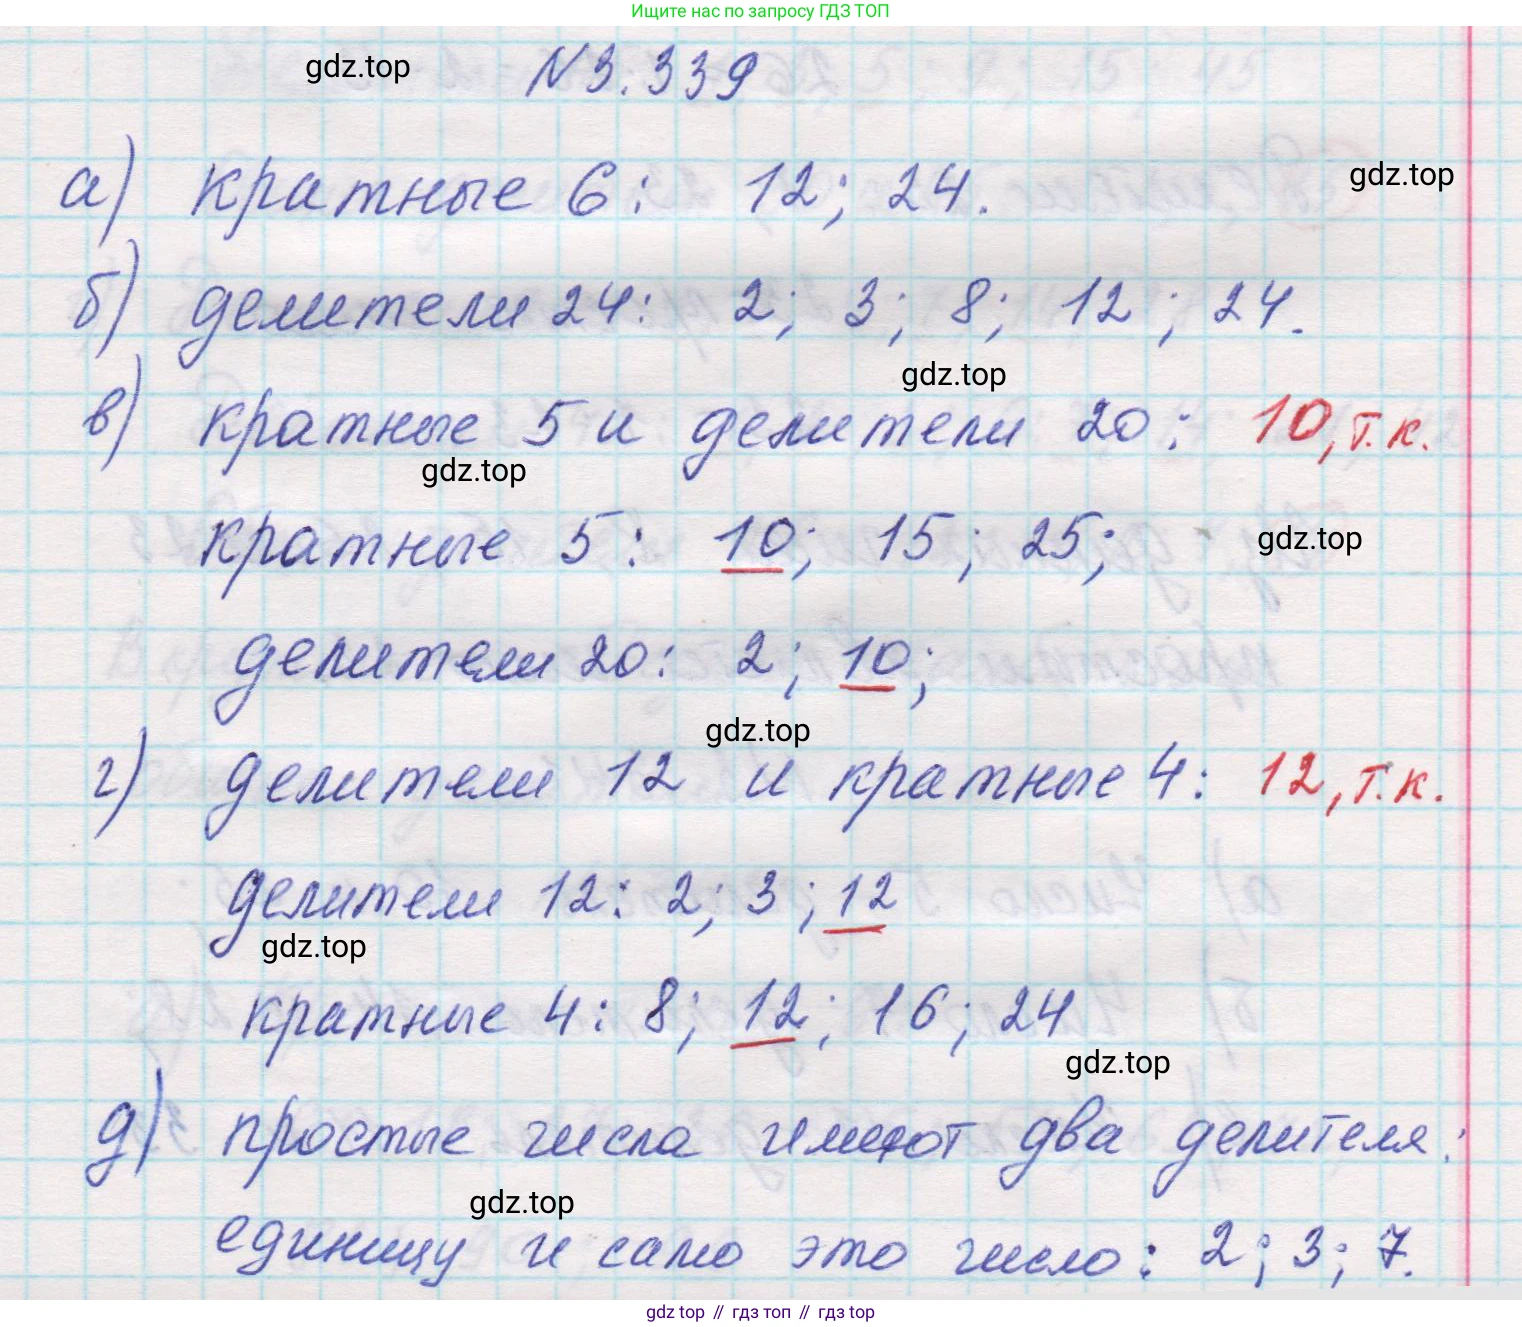 Ищите нас по запросу ГДЗ ТОП
gdz.top
N3.339
а) кратные 6: 12; 24.
gdz.top
б) делители 24: 2; 3; 8; 12; 24.
gdz.top
в) кратные 5 и делители 20: 10, т.к.
gdz.top
кратные 5: 10; 15; 25;
gdz.top
делители 20: 2; 10;
gdz.top
г) делители 12 и кратные 4: 12, т.к.
делители 12: 2; 3; 12
gdz.top
кратные 4: 8; 12; 16; 24
gdz.top
д) простые числа имеют два делителя:
gdz.top
единицу и само это число: 2; 3; 7.
gdz top // гдз топ // гдз top